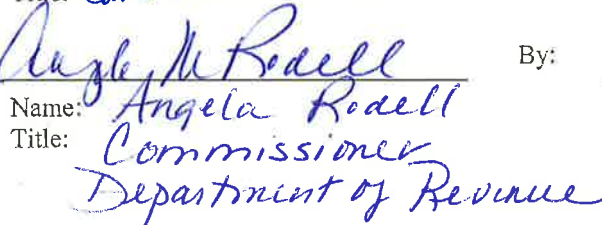 Angela M Rodell
By:
Name: Angela Rodell
Title: Commissioner
Department of Revenue